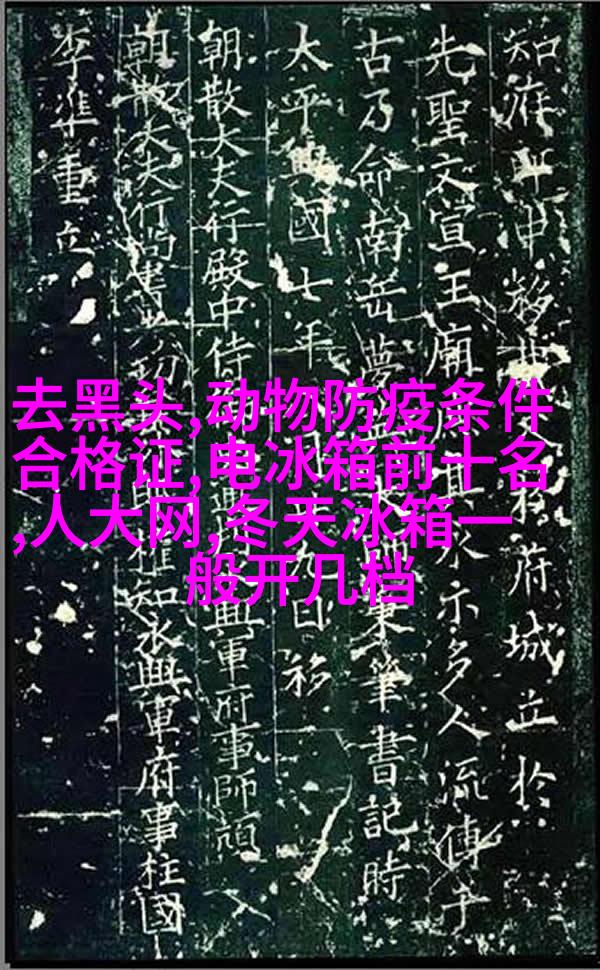 去黑头,动物防疫条件
合格证,电冰箱前十名
,人大网,冬天冰箱一
般开几档
知府 移 府城立於
先聖文宣王廟 永示多人流傳于
古乃命南岳夢 秉筆書記時
太平興國七年 日移
朝散大夫行殿中侍 興軍府事師頏
朝散大夫行尚書 知永興軍府事柱國
李準重立